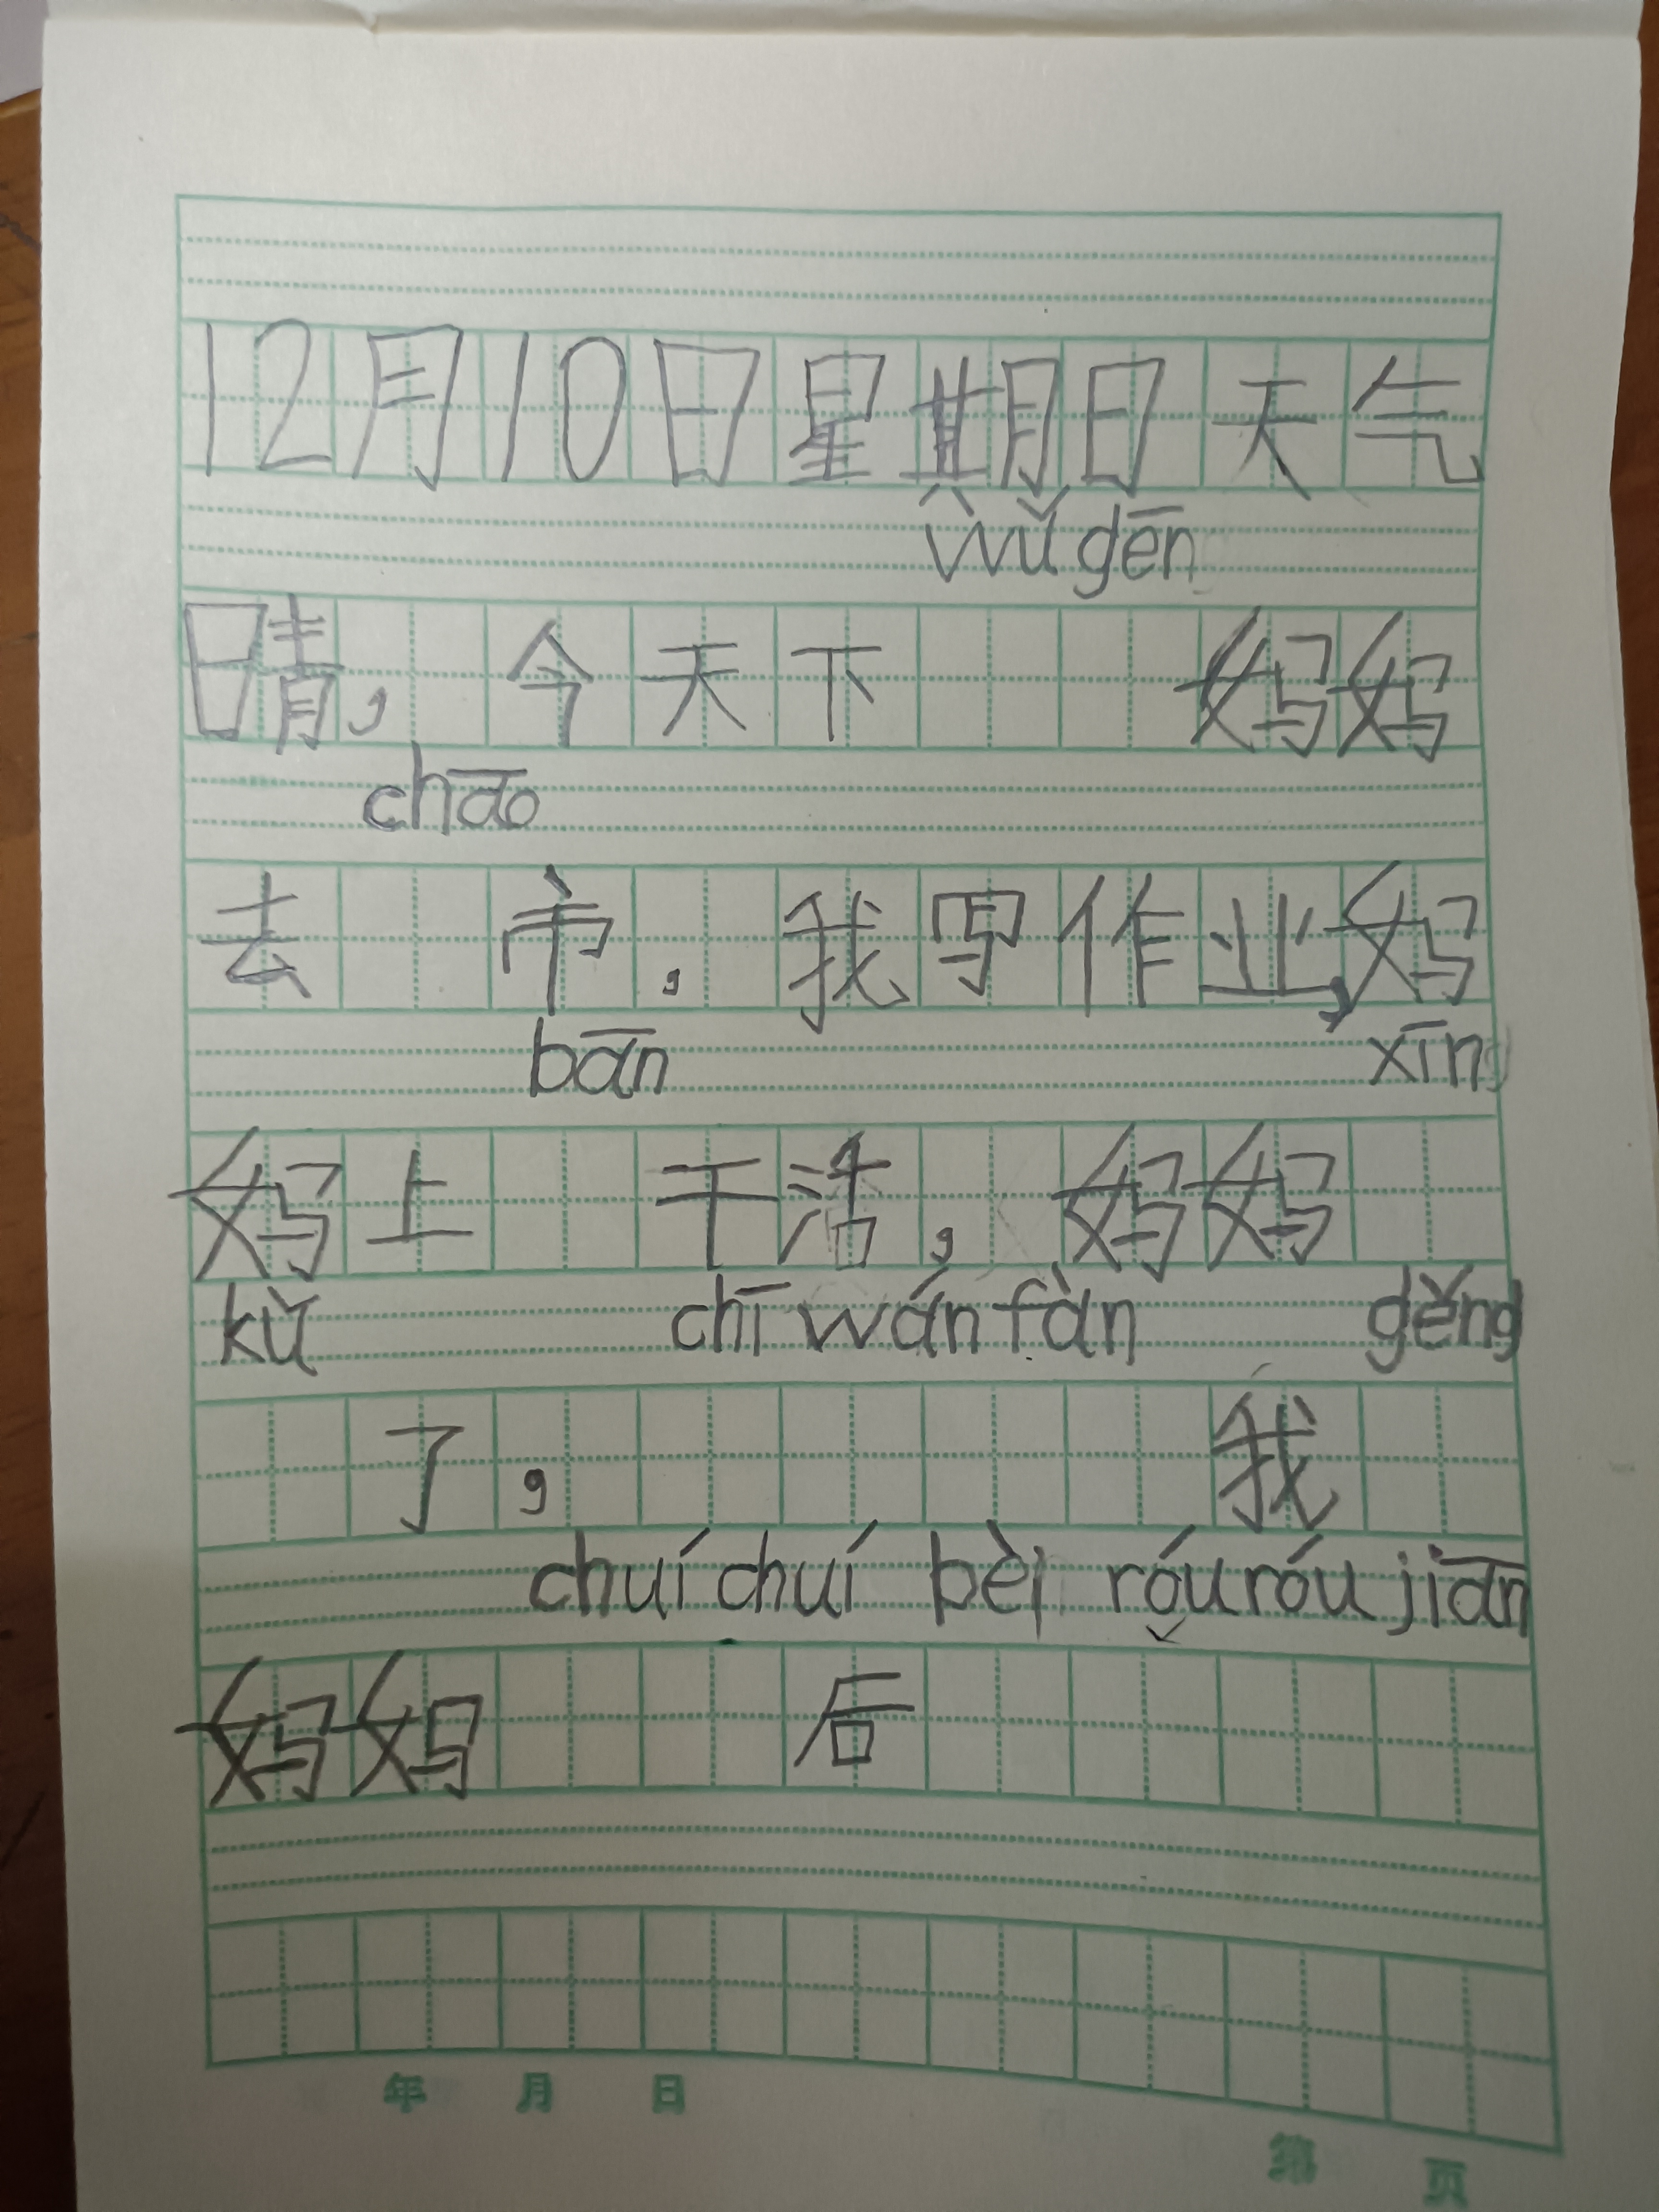 12月10日星期日天气
wǔ gēn
晴，今天下 妈妈
chāo
去 市，我写作业，妈
bān xīng
妈上 干活，妈妈
kǔ chī wán fàn gěng
了， 我
chuí chuí bèi róu róu jiān
妈妈 后
年 月 日
第 页